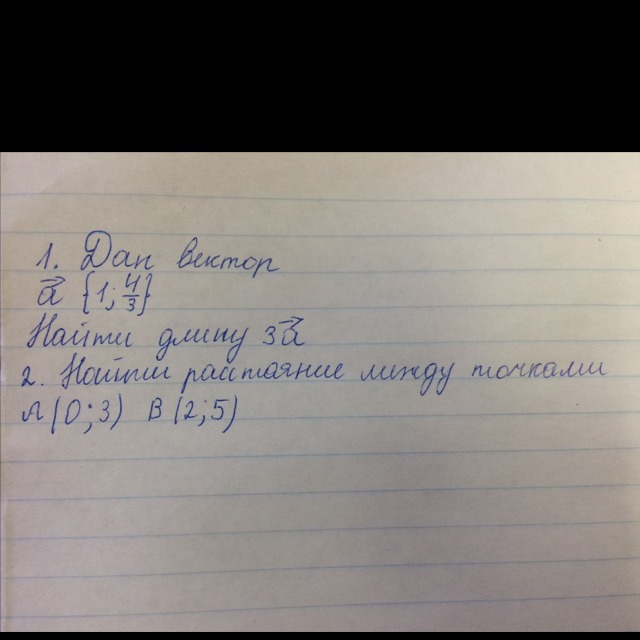 1. Дан вектор
a⃗ {1; 4/3}
Найти длину 3a⃗
2. Найти растояние между точками
A(0;3) B(2;5)